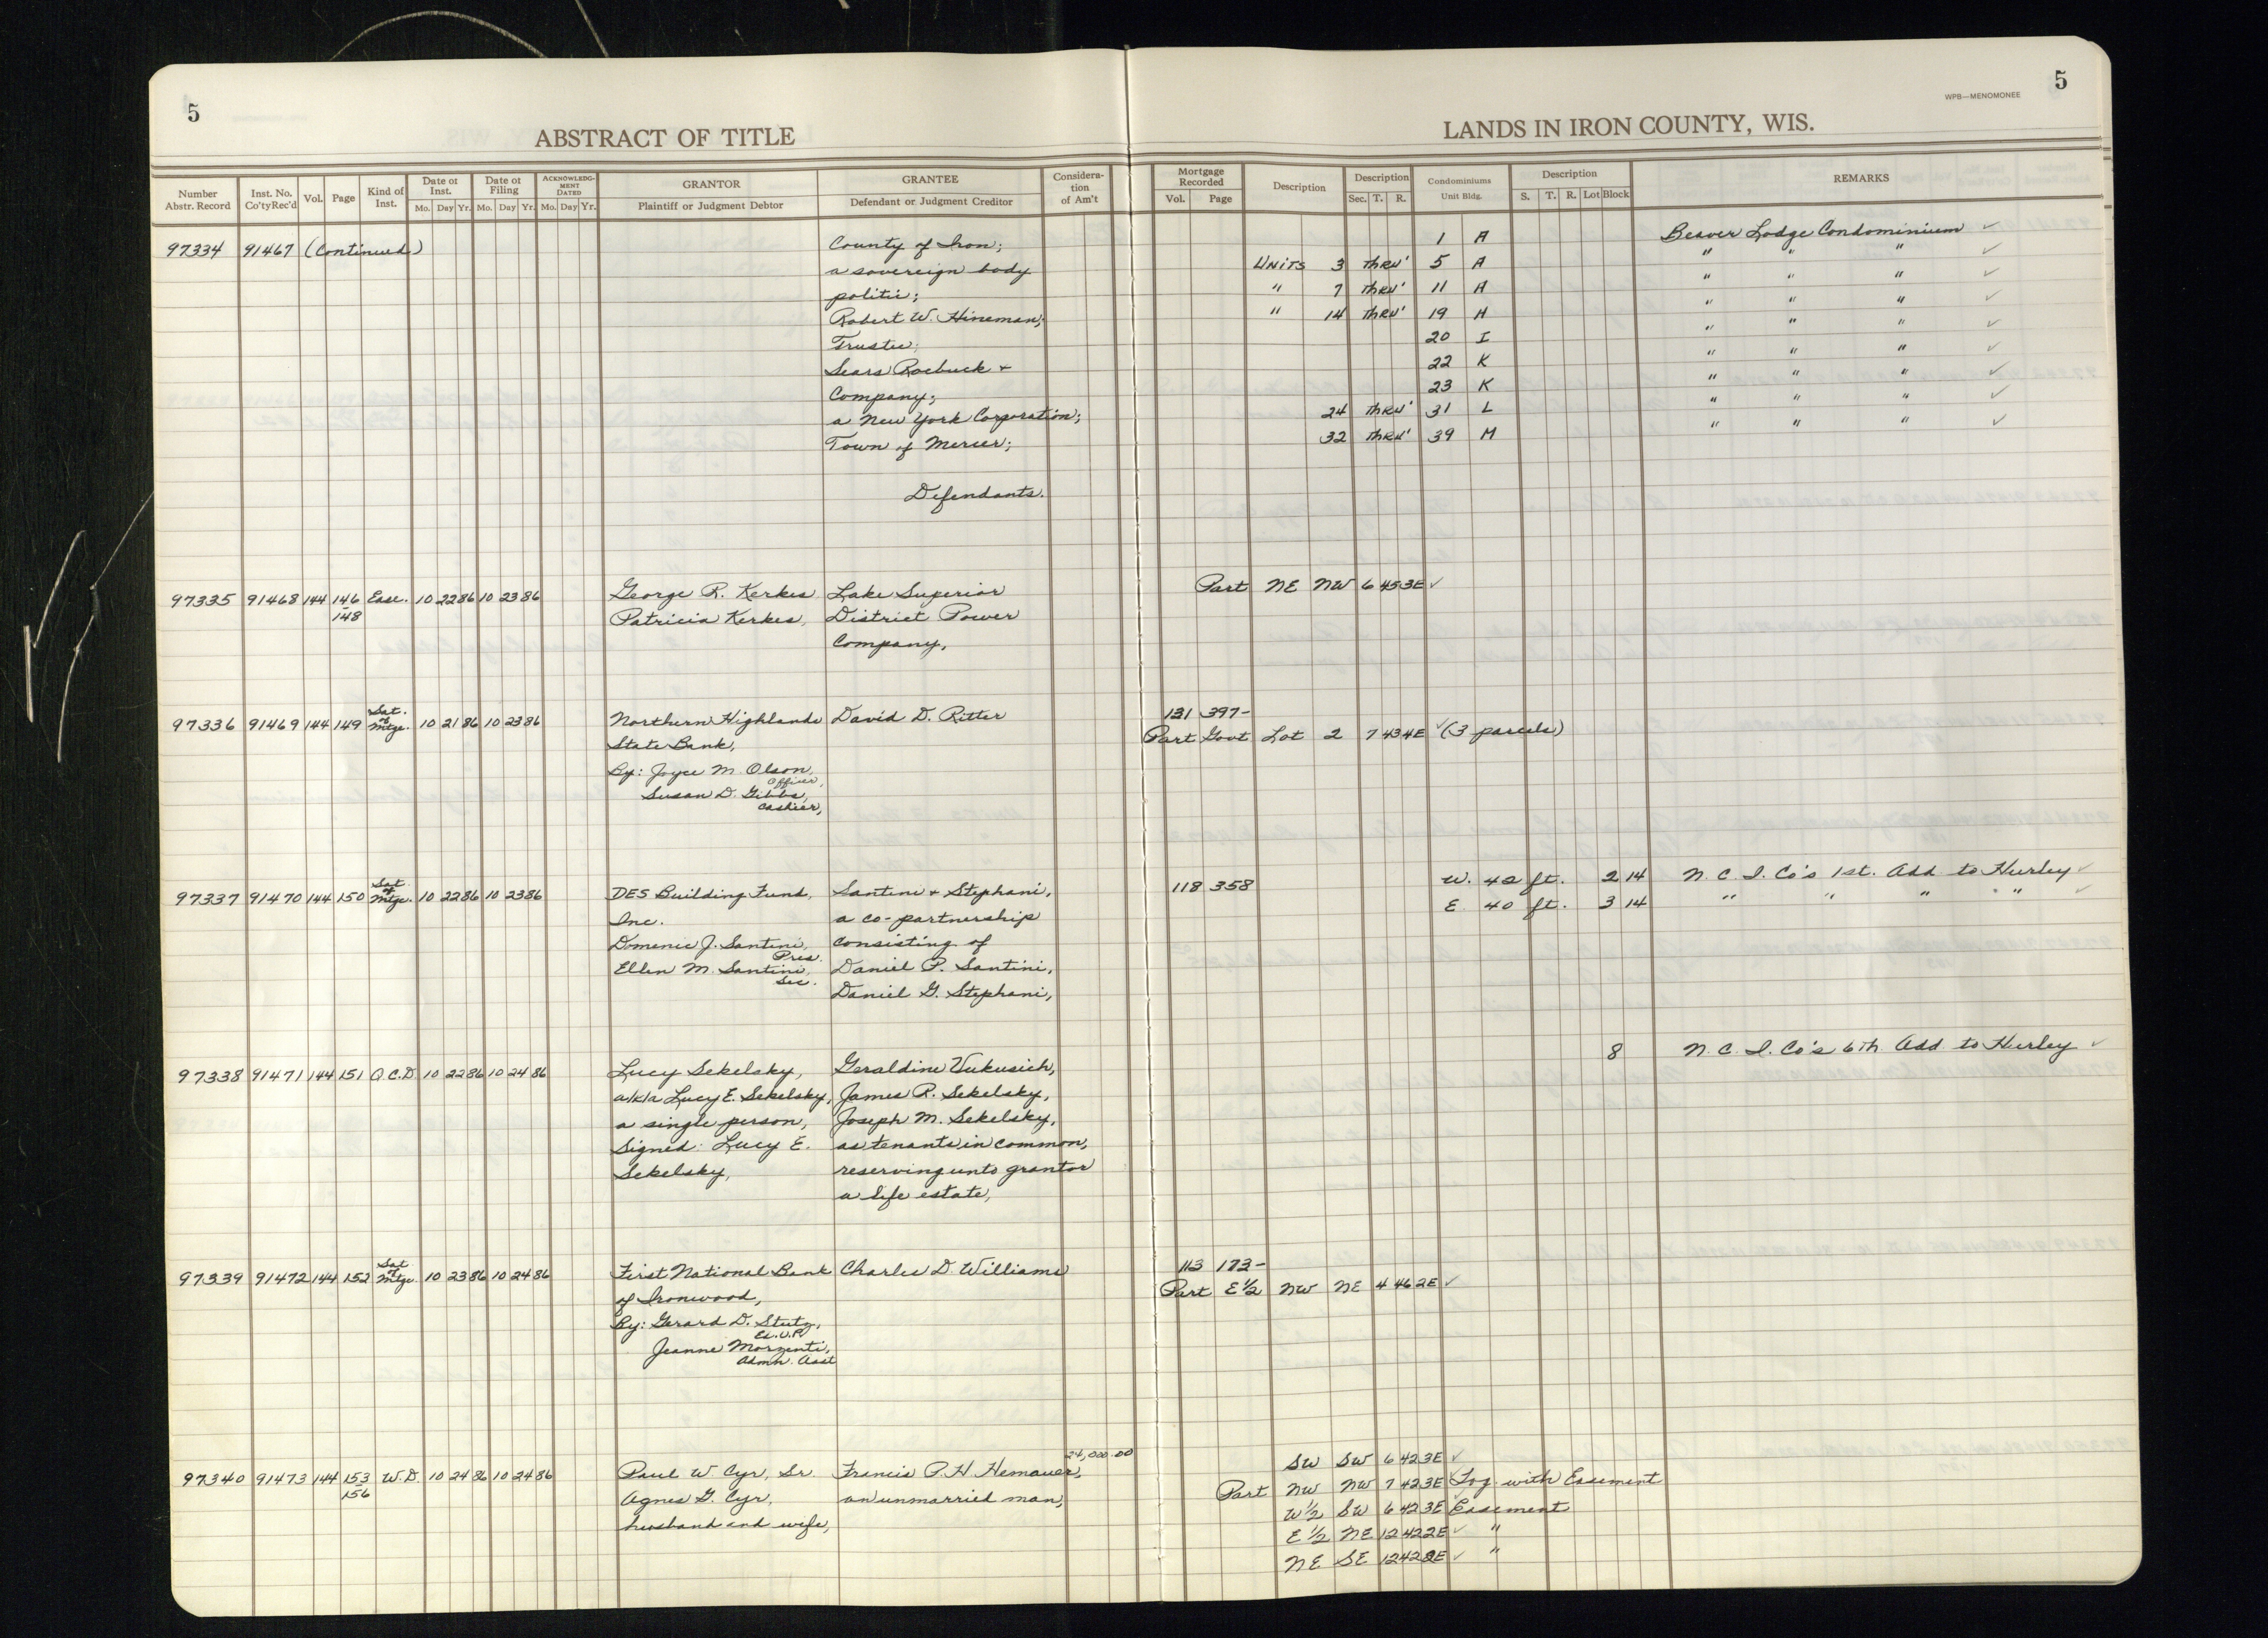 5
5
WPB—MENOMONEE
ABSTRACT OF TITLE
LANDS IN IRON COUNTY, WIS.
Number Abstr. Record
Inst. No. Co'ty Rec'd
Vol.
Page
Kind of Inst.
Date of Inst. Mo. Day Yr.
Date of Filing Mo. Day Yr.
ACKNOWLEDGMENT DATED Mo. Day Yr.
GRANTOR Plaintiff or Judgment Debtor
GRANTEE Defendant or Judgment Creditor
Consideration of Am't
Mortgage Recorded Vol. Page
Description
Description Sec. T. R.
Condominiums Unit Bldg.
Description S. T. R. Lot Block
REMARKS
97334 91467 (Continued) County of Iron; 1 A Beaver Lodge Condominium ✓
a sovereign body Units 3 thru' 5 A " " " ✓
politic; " 7 thru' 11 A " " " ✓
Robert W. Hineman; " 14 thru' 19 H " " " ✓
Trustee; 20 I " " " ✓
Sears Roebuck + 22 K " " " ✓
Company; 23 K " " " ✓
a New York Corporation; 24 thru' 31 L " " " ✓
Town of Mercer; 32 thru' 39 M " " " ✓
Defendants.
97335 91468 144 146 Ease. 10 22 86 10 23 86 George R. Kerkes Lake Superior Part NE NW 6 45 3E ✓
-148 Patricia Kerkes, District Power
Company,
97336 91469 144 149 Sat. of Mtge. 10 21 86 10 23 86 Northern Highlands David D. Ritter 131 397-
State Bank, Part Govt Lot 2 7 43 4E ✓ (3 parcels)
By: Joyce M. Olson,
Officer,
Susan D. Gibbs,
Cashier,
97337 91470 144 150 Sat. of Mtge. 10 22 86 10 23 86 DES Building Fund, Santini + Stephani, 118 358 W. 42 ft. 2 14 N. C. I. Co's 1st. Add to Hurley ✓
Inc. a co-partnership E 40 ft. 3 14 " " " " " ✓
Domenic J. Santini, consisting of
Pres.
Ellen M. Santini, Daniel P. Santini,
Sec.
Daniel G. Stephani,
97338 91471 144 151 Q.C.D. 10 22 86 10 24 86 Lucy Sekelsky, Geraldine Vukusich, 8 N. C. I. Co's 6th Add to Hurley ✓
a/k/a Lucy E. Sekelsky, James R. Sekelsky,
a single person, Joseph M. Sekelsky,
Signed: Lucy E. as tenants in common,
Sekelsky, reserving unto grantor
a life estate,
97339 91472 144 152 Sat. of Mtge. 10 23 86 10 24 86 First National Bank Charles D. Williams 113 173-
of Ironwood, Part E½ NW NE 4 46 2E ✓
By: Gerard D. Stutz,
Ex. V.P.
Jeanne Morzenti,
Admn. Asst
24,000.00
97340 91473 144 153 W.D. 10 24 86 10 24 86 Paul W. Cyr, Sr. Francis P. H. Hemauer, SW SW 6 42 3E ✓
-156 Agnes G. Cyr, an unmarried man, Part NW NW 7 42 3E Tog with Easement
husband and wife, W½ SW 6 42 3E Easement
E½ NE 12 42 2E ✓ "
NE SE 12 42 2E ✓ "